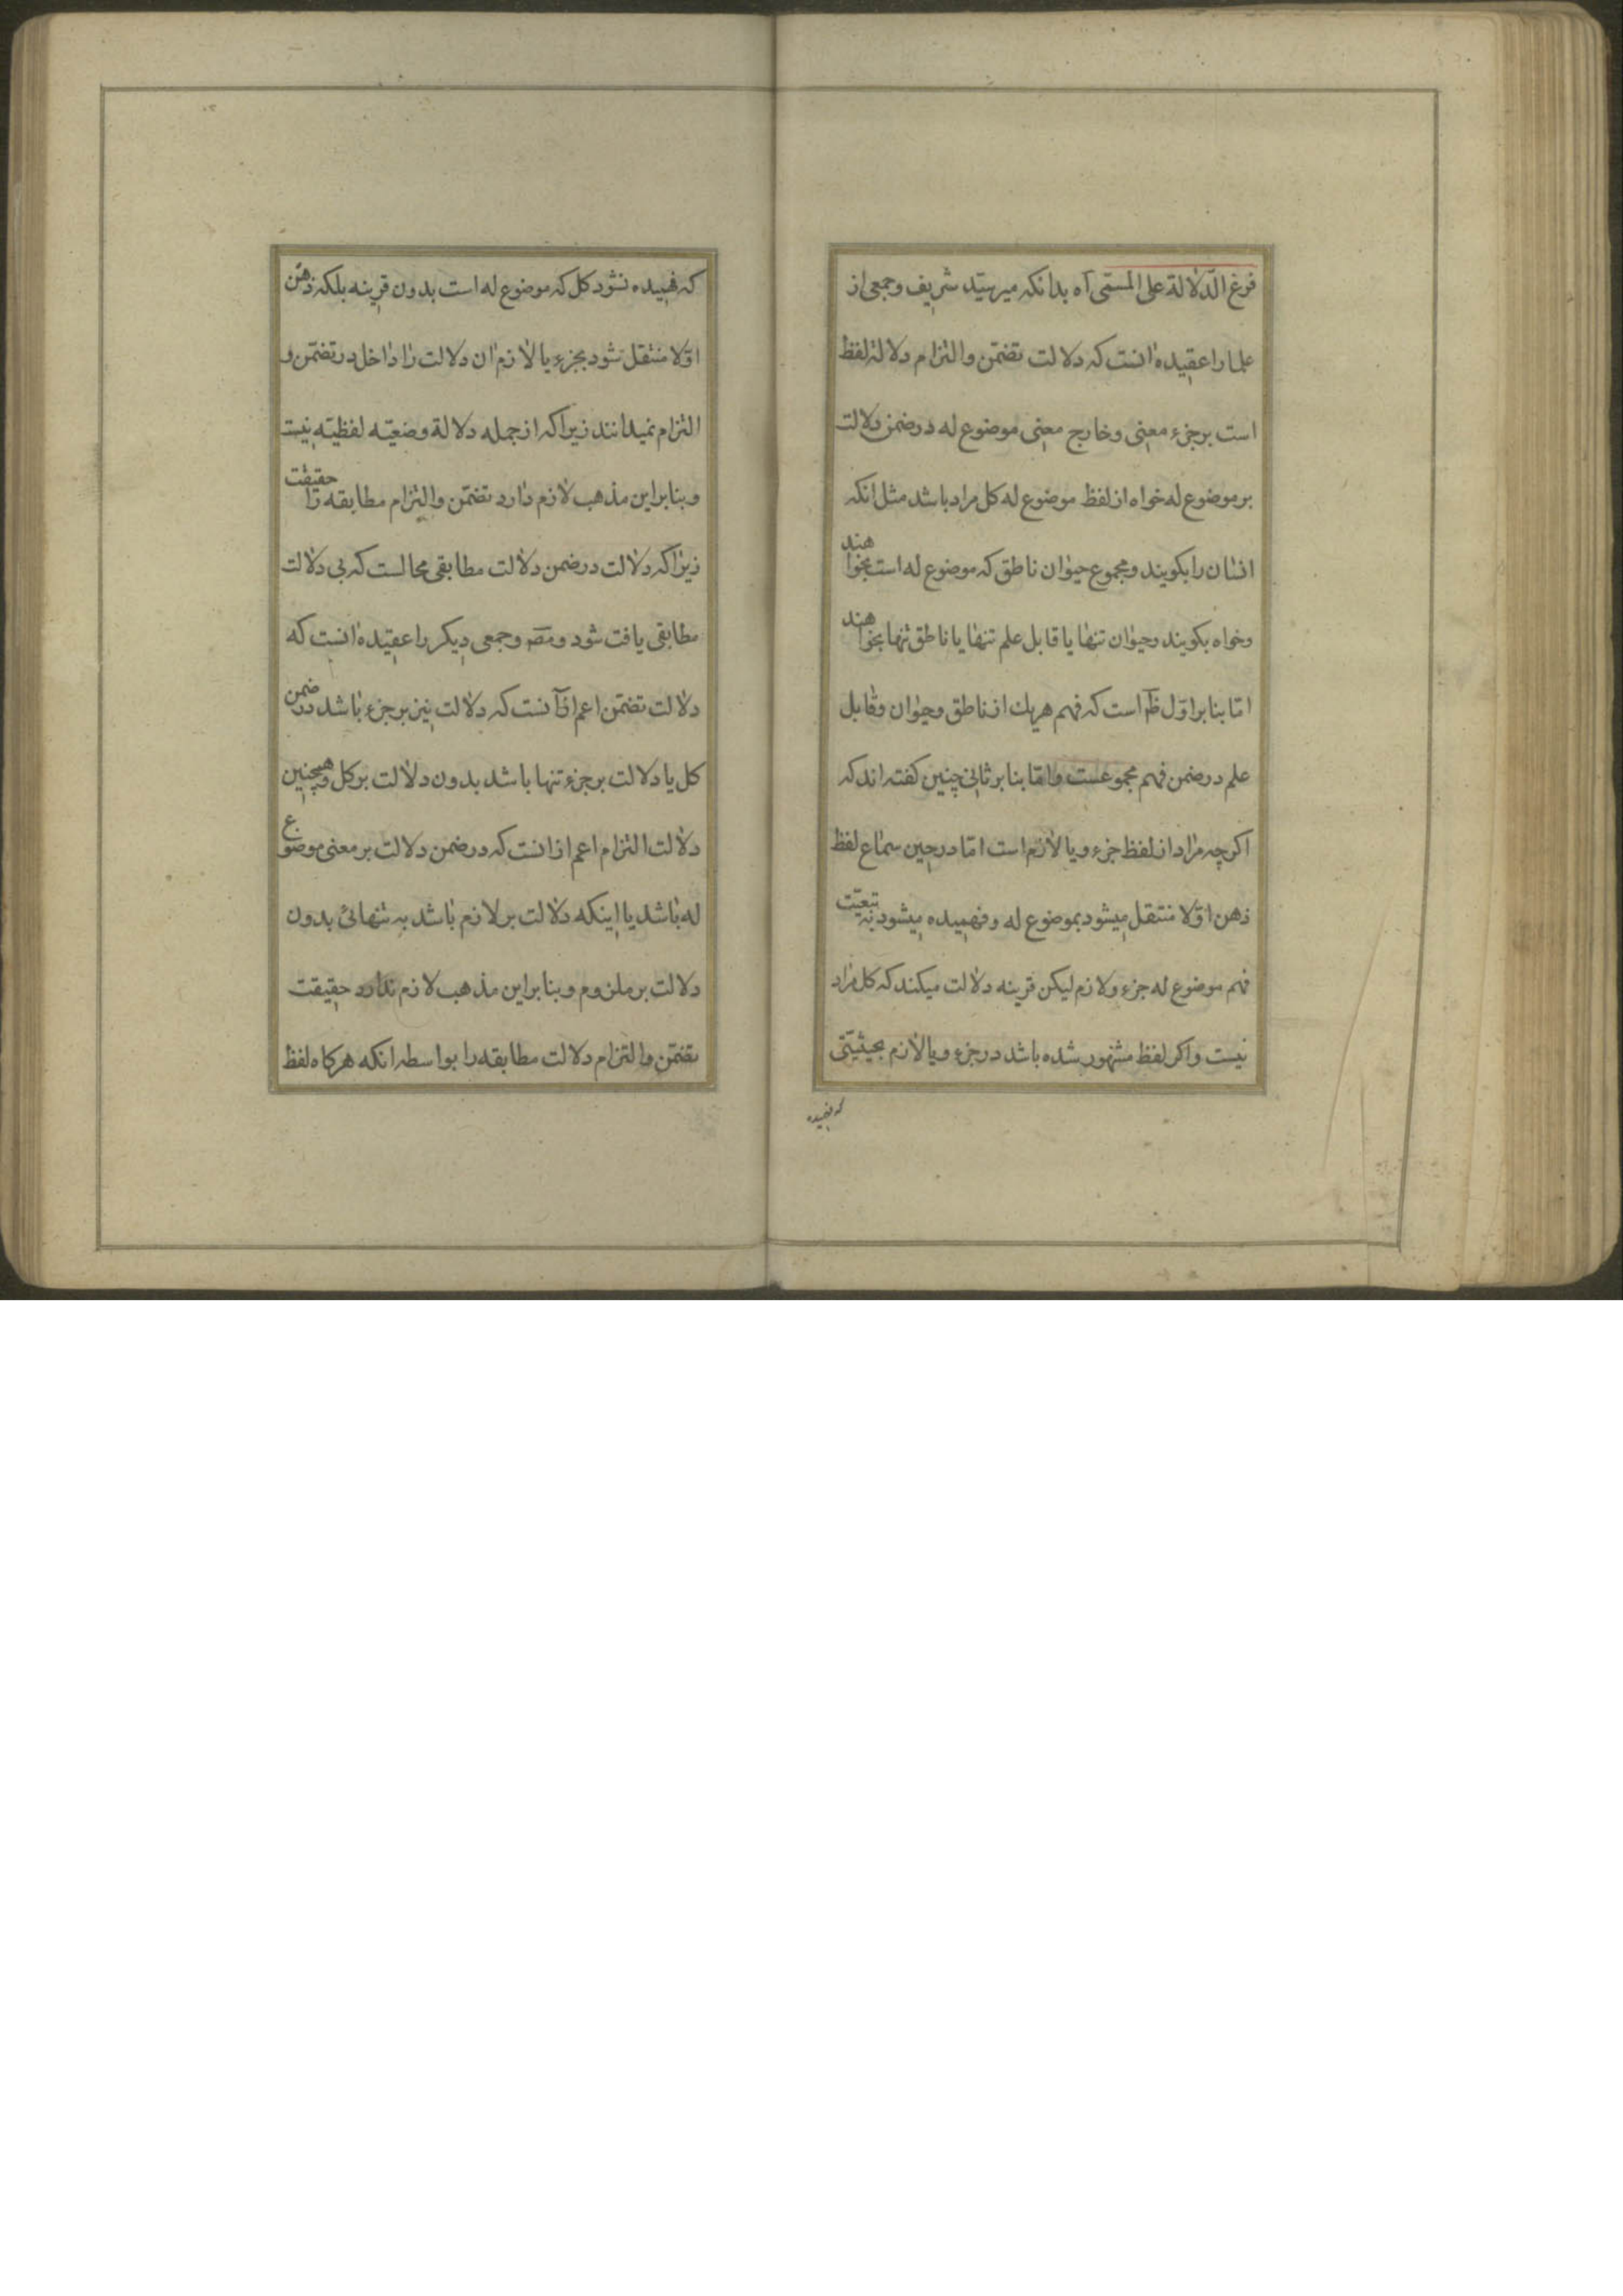 فرغ الدّلالة على المسمّى آه بدانكه مير سيّد شريف وجمعى از
علما را عقيده انست كه دلالت تضمّن والتزام دلالة لفظ
است بر جزء معنى وخارج معنى موضوع له در ضمن دلالت
بر موضوع له خواه از لفظ موضوع له كل مراد باشد مثل انكه
انسان را بكويند ومجموع حيوان ناطق كه موضوع له است بخواهند
وخواه بكويند وحيوان تنها يا قابل علم تنها يا ناطق تنها بخواهند
امّا بنا بر اوّل ظ است كه فهم هريك از ناطق وحيوان وقابل
علم در ضمن فهم مجموعست وامّا بنا بر ثانى چنين كفته اند كه
اكرچه مراد از لفظ جزء ويا لازم است امّا در حين سماع لفظ
ذهن اوّلا منتقل ميشود بموضوع له وفهميده ميشود به تبعيّت
فهم موضوع له جزء ولازم ليكن قرينه دلالت ميكند كه كل مراد
نيست واكر لفظ مشهور شده باشد در جزء ويا لازم بحيثيّتى
كه فهميده
كه فهميده نشود كل كه موضوع له است بدون قرينه بلكه ذهن
اوّلا منتقل شود بجزء يا لازم ان دلالت را داخل در تضمّن و
التزام نميدانند زيرا كه از جمله دلالة وضعيّه لفظيّه نيست
وبنا براين مذهب لازم دارد تضمّن والتزام مطابقه را حقيقت
زيرا كه دلالت در ضمن دلالت مطابقى محالست كه بى دلالت
مطابقى يافت شود ومصّ وجمعى ديكر را عقيده انست كه
دلالت تضمّن اعم از آنست كه دلالت نيز بر جزء باشد در ضمن
كل يا دلالت بر جزء تنها باشد بدون دلالت بر كل وهمچنين
دلالت التزام اعم از انست كه در ضمن دلالت بر معنى موضوع
له باشد يا اينكه دلالت بر لازم باشد به تنهائى بدون
دلالت بر ملزوم وبنا براين مذهب لازم ندارد حقيقت
تضمّن والتزام دلالت مطابقه را بواسطه انكه هركاه لفظ